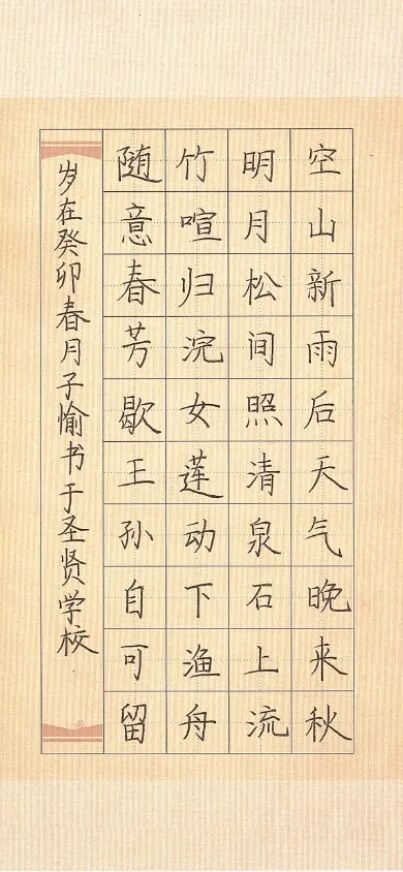 空山新雨后天气晚来秋
明月松间照清泉石上流
竹喧归浣女莲动下渔舟
随意春芳歇王孙自可留
岁在癸卯春月子愉书于圣贤学校